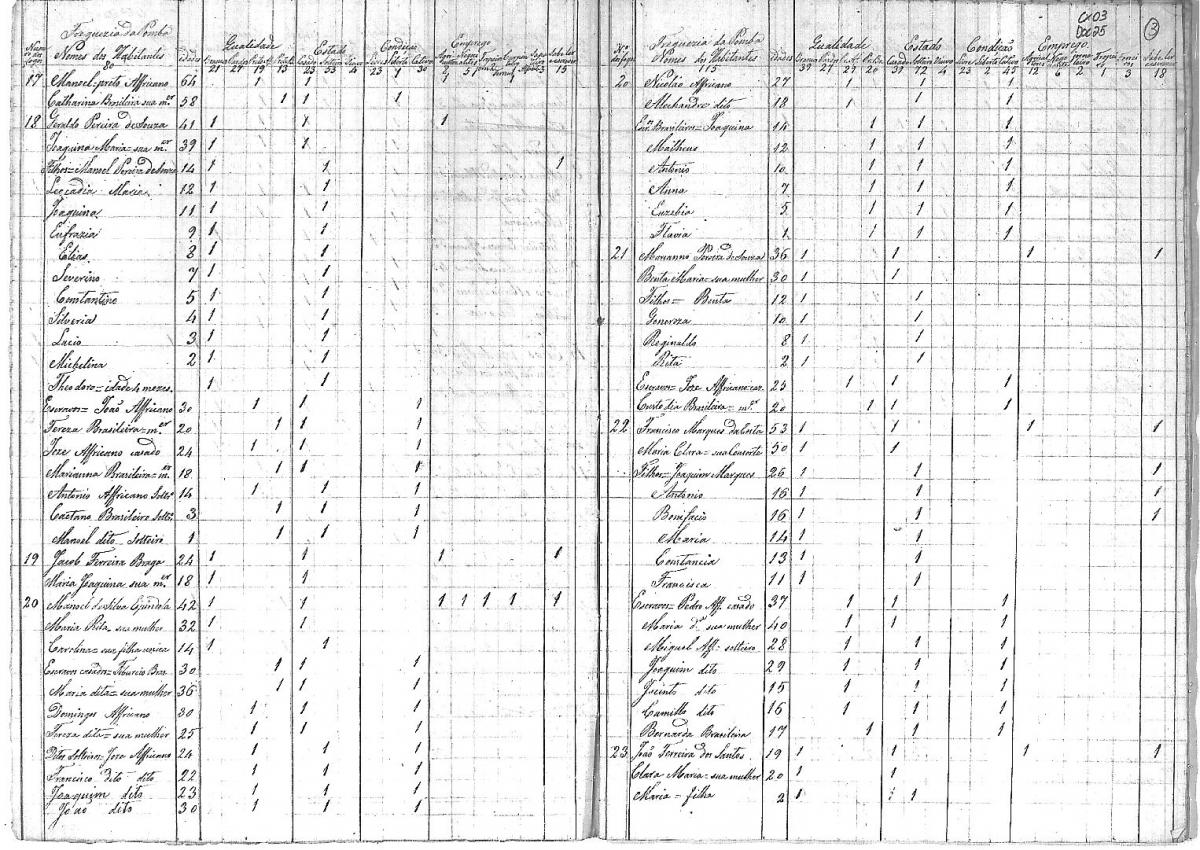 Freguezia da Pomba
Nomes dos Habitantes
Idades
Qualidade
Estado
Condição
Emprego
17 Manoel preto Affricano 64 1 1 1
Catharina Brasileira sua m.er 58 1 1 1
18 Geraldo Pereira de Souza 41 1 1 1
Joaquina Maria sua m.er 39 1 1
Filhos = Manoel Pereira de Souza 14 1 1 1
Leocadia Maria 12 1 1
Joaquina 11 1 1
Eufrazia 9 1 1
Elias 8 1 1
Severino 7 1 1
Constantino 5 1 1
Silveria 4 1 1
Lucio 3 1 1
Michelina 2 1 1
Theodoro = idade 4 mezes. 1 1
Escravos = João Affricano 30 1 1 1
Tereza Brasileira = m.er 20 1 1 1
Joze Affricano casado 24 1 1 1
Marianna Brasileira = m.er 18 1 1 1
Antonio Affricano Soltr.o 14 1 1 1
Caetano Brasileiro Soltr.o 3 1 1 1
Manoel dito Solteiro 1 1 1 1
19 Jacob Ferreira Braga 24 1 1 1 1
Maria Joaquina sua m.er 18 1 1
20 Manoel da Silva Espindola 42 1 1 1 1 1 1 1
Maria Rita sua mulher 32 1 1
Carolina = sua filha unica 14 1 1
Escravos casados = Tiburcio Bras. 30 1 1 1
Maria dita = sua mulher 36 1 1 1
Domingos Affricano 30 1 1 1
Tereza dita = sua mulher 25 1 1 1
Ditos Solteiros = Joze Affricano 24 1 1 1
Francisco Dito dito 22 1 1 1
Joaquim dito 23 1 1 1
João dito 30 1 1 1
Cx 03
Doc 05
3
Freguezia da Pomba
Nomes dos Habitantes
115
Idades
Qualidade
Estado
Condição
Emprego
20 Nicoláo Affricano 27 1 1 1
Alexandre dito 18 1 1 1
Brasileiros = Joaquina 14 1 1 1
Matheus 12 1 1 1
Antonio 10 1 1 1
Anna 7 1 1 1
Euzebia 5 1 1 1
Flavia 1 1 1 1
21 Marianno Pereira de Souza 36 1 1 1 1
Benta Maria = sua mulher 30 1 1
Filhos = Benta 12 1 1
Generoza 10 1 1
Reginaldo 8 1 1
Rita 2 1 1
Escravos = Joze Affricano cas. 25 1 1 1
Custodia Brasileira = m.er 20 1 1 1
22 Francisco Marques da Costa 53 1 1 1 1
Maria Clara = sua Consorte 50 1 1
Filhos = Joaquim Marques 26 1 1 1
Antonio 16 1 1 1
Bonifacio 16 1 1 1
Maria 14 1 1
Constancia 13 1 1
Francisca 11 1 1
Escravos = Pedro Aff. casado 37 1 1 1
Maria d.a sua mulher 40 1 1 1
Miguel Aff. solteiro 28 1 1 1
Joaquim dito 29 1 1 1
Jacinto dito 15 1 1 1
Camillo dito 16 1 1 1
Bernarda Brasileira 17 1 1 1
23 João Ferreira dos Santos 19 1 1 1 1
Clara Maria = sua mulher 20 1 1
Maria = filha 2 1 1 1